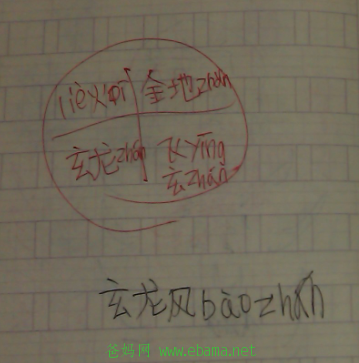 liè火阵 金地zhàn
玄龙zhàn 飞yīng
玄zhàn
玄龙风bàozhàn
爸妈网 www.ebama.net